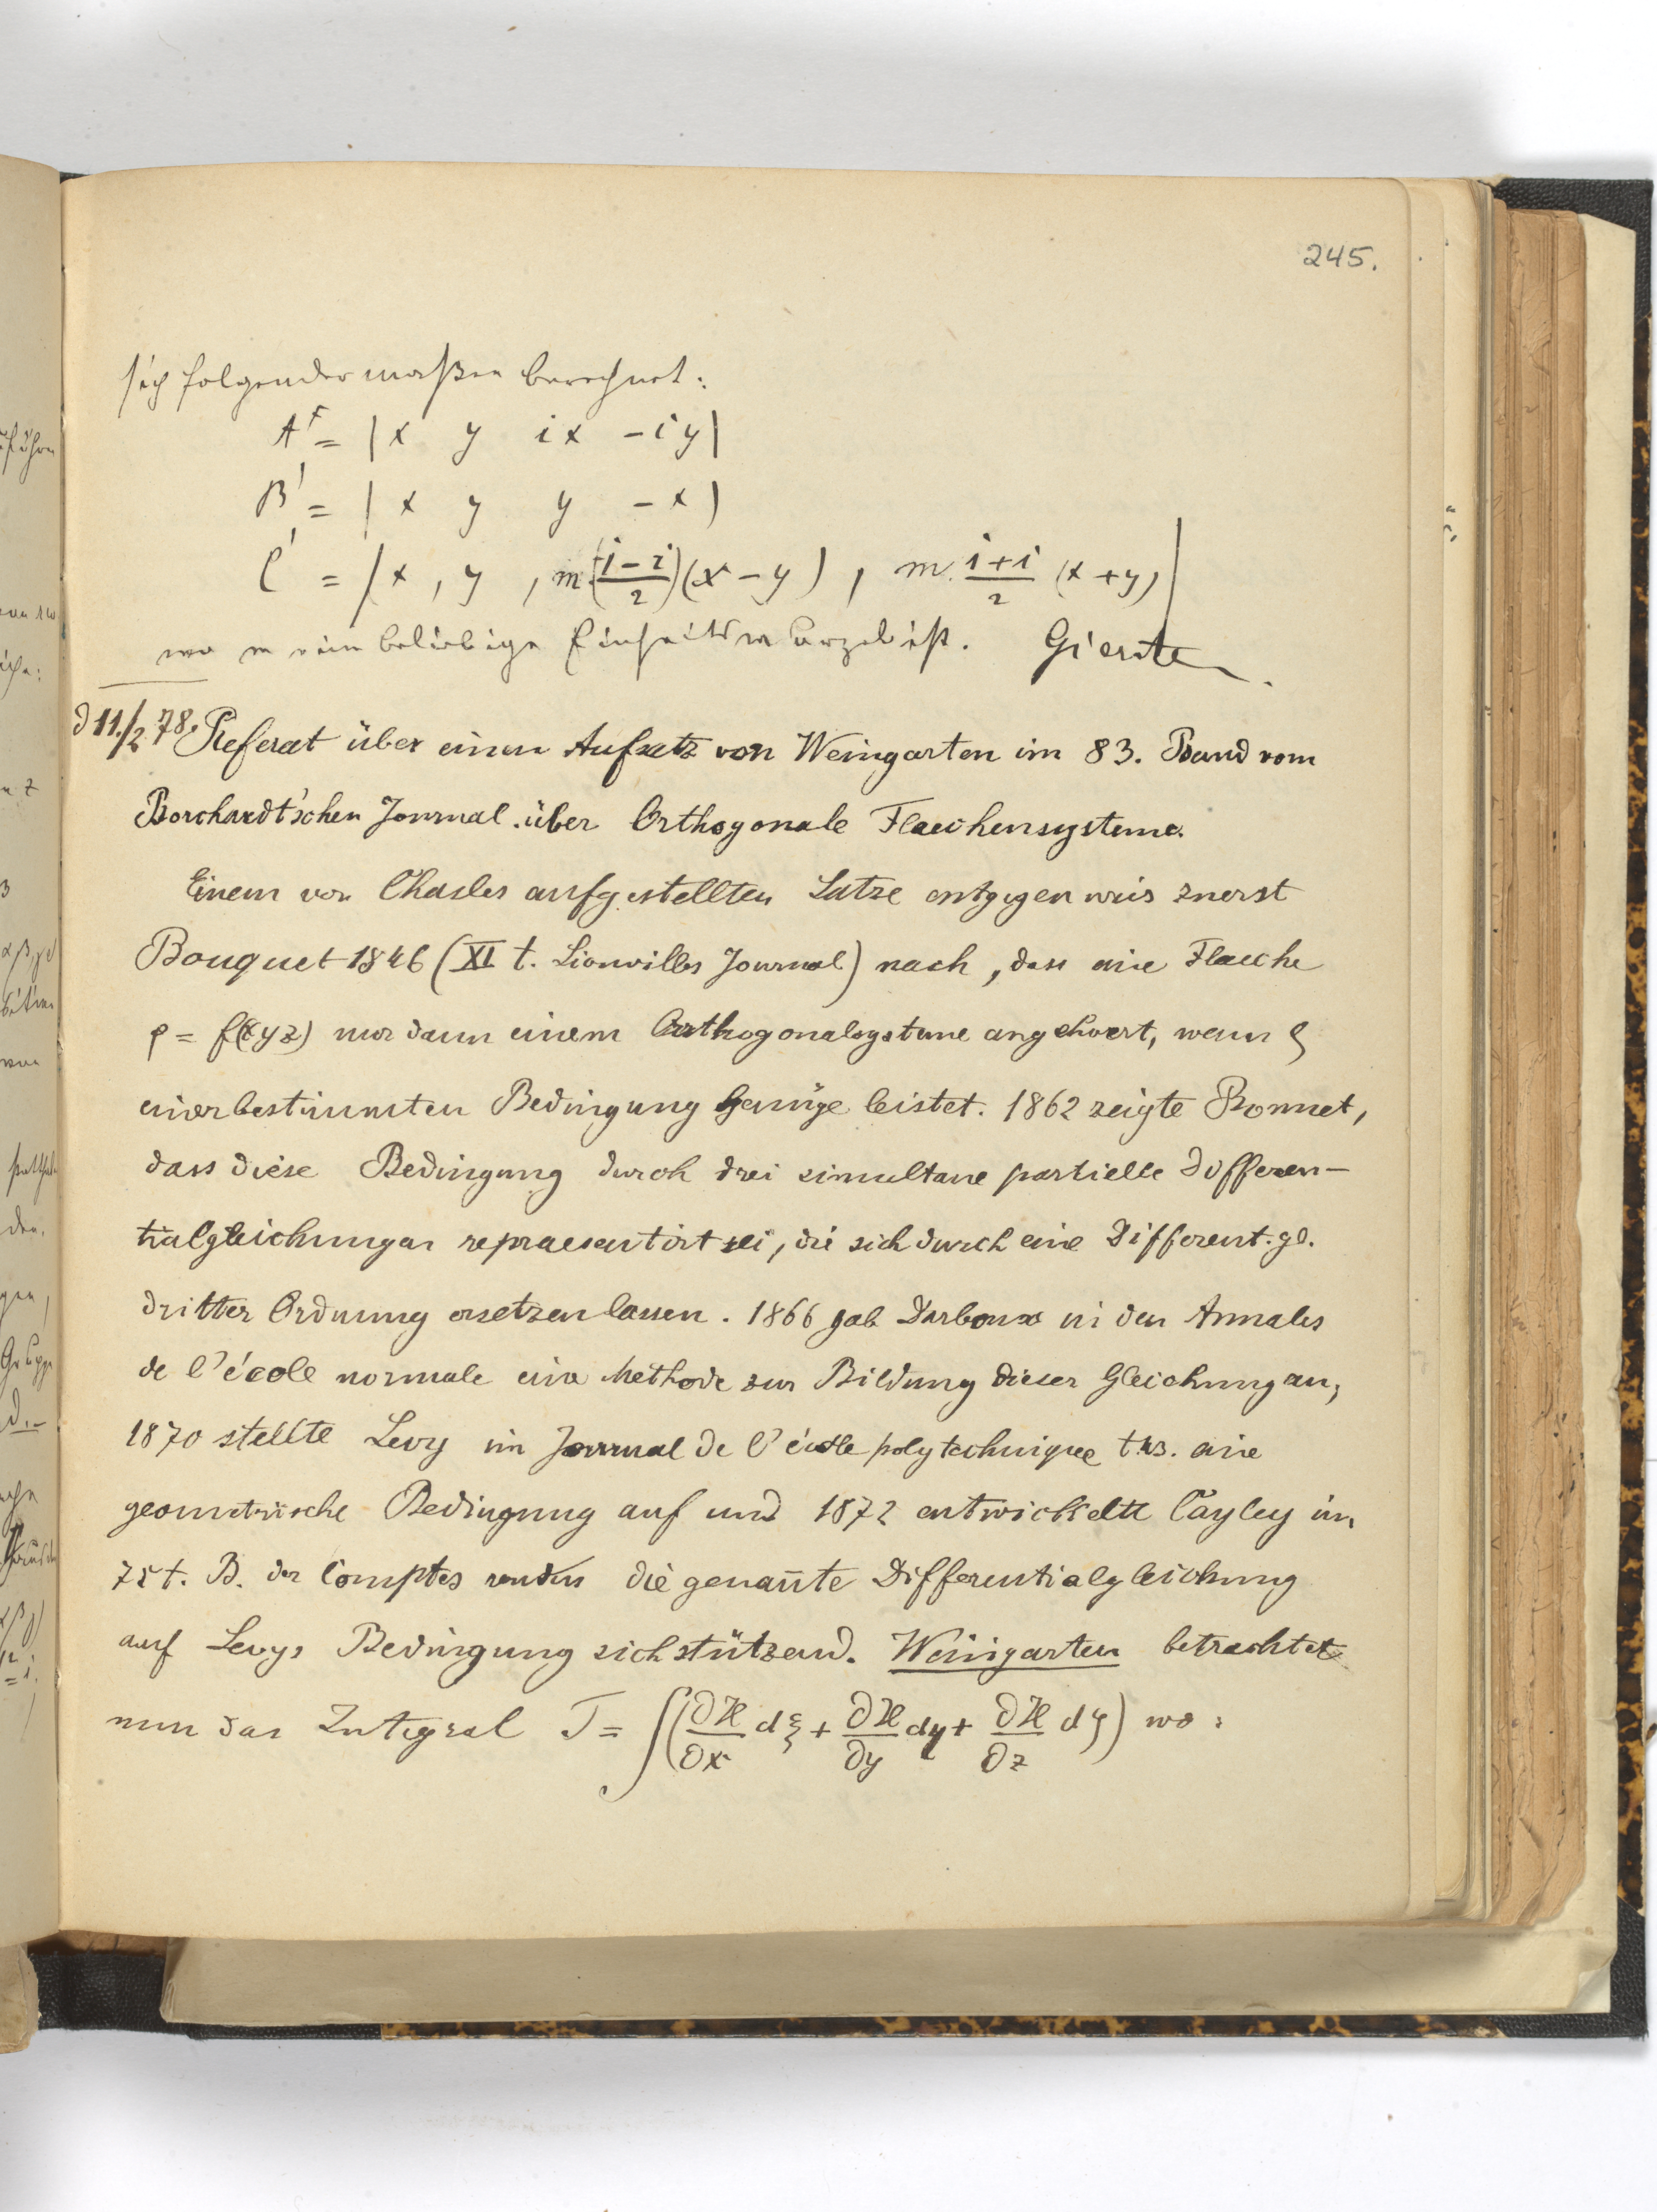 245.
sich folgendermaßen berechnet:
A' = | x y ix -iy |
B' = | x y y -x |
C' = | x , y , m (i-i/2)(x-y) , m. i+i/2 (x+y) |
wo m eine beliebige Einheitswurzel ist. Gierste
d 11./2 78. Referat über einen Aufsatz von Weingarten im 83. Band vom
Borchardt'schen Journal über Orthogonale Flaechensysteme.
Einem von Chasles aufgestellten Satze entgegen wies zuerst
Bouquet 1846 (XI t. Liouvilles Journal) nach, dass eine Flaeche
ρ = f(xyz) nur dann einem Orthogonalsysteme angehoert, wenn ρ
einer bestimmten Bedingung Genüge leistet. 1862 zeigte Bonnet,
dass diese Bedingung durch drei simultane partielle Differen-
tialgleichungen repraesentirt sei, die sich durch eine Different.gl.
dritter Ordnung ersetzen lassen. 1866 gab Darboux in den Annales
de l'école normale eine Methode zur Bildung dieser Gleichung an,
1870 stellte Levy im Journal de l'école polytechnique t.43. eine
geometrische Bedingung auf und 1872 entwickelte Cayley im
75t. B. der Comptes rendus die genan̄te Differentialgleichung
auf Levys Bedingung sich stützend. Weingarten betrachtet
nun das Integral J = ∫(∂H/∂x dξ + ∂H/∂y dη + ∂H/∂z dζ) wo: